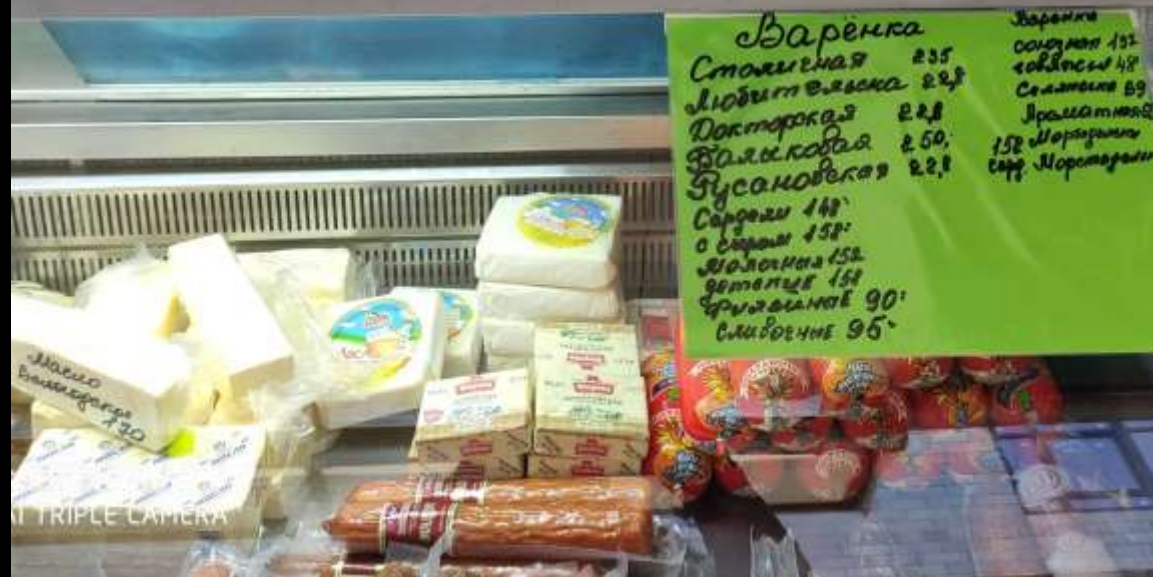 Варёнка
Столичная 235
Любительска 228
Докторская 228
Балыковая 250
Русановская 228
Сардели 148
с сыром 158
молочные 152
детские 158
Филейные 90
Сливочные 95
Варенка
союзная 192
говяжья 48
Ароматная
158
Масло
Вологодское
130
AI TRIPLE CAMERA